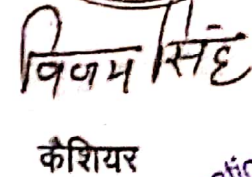 विजय सिंह
केशियर